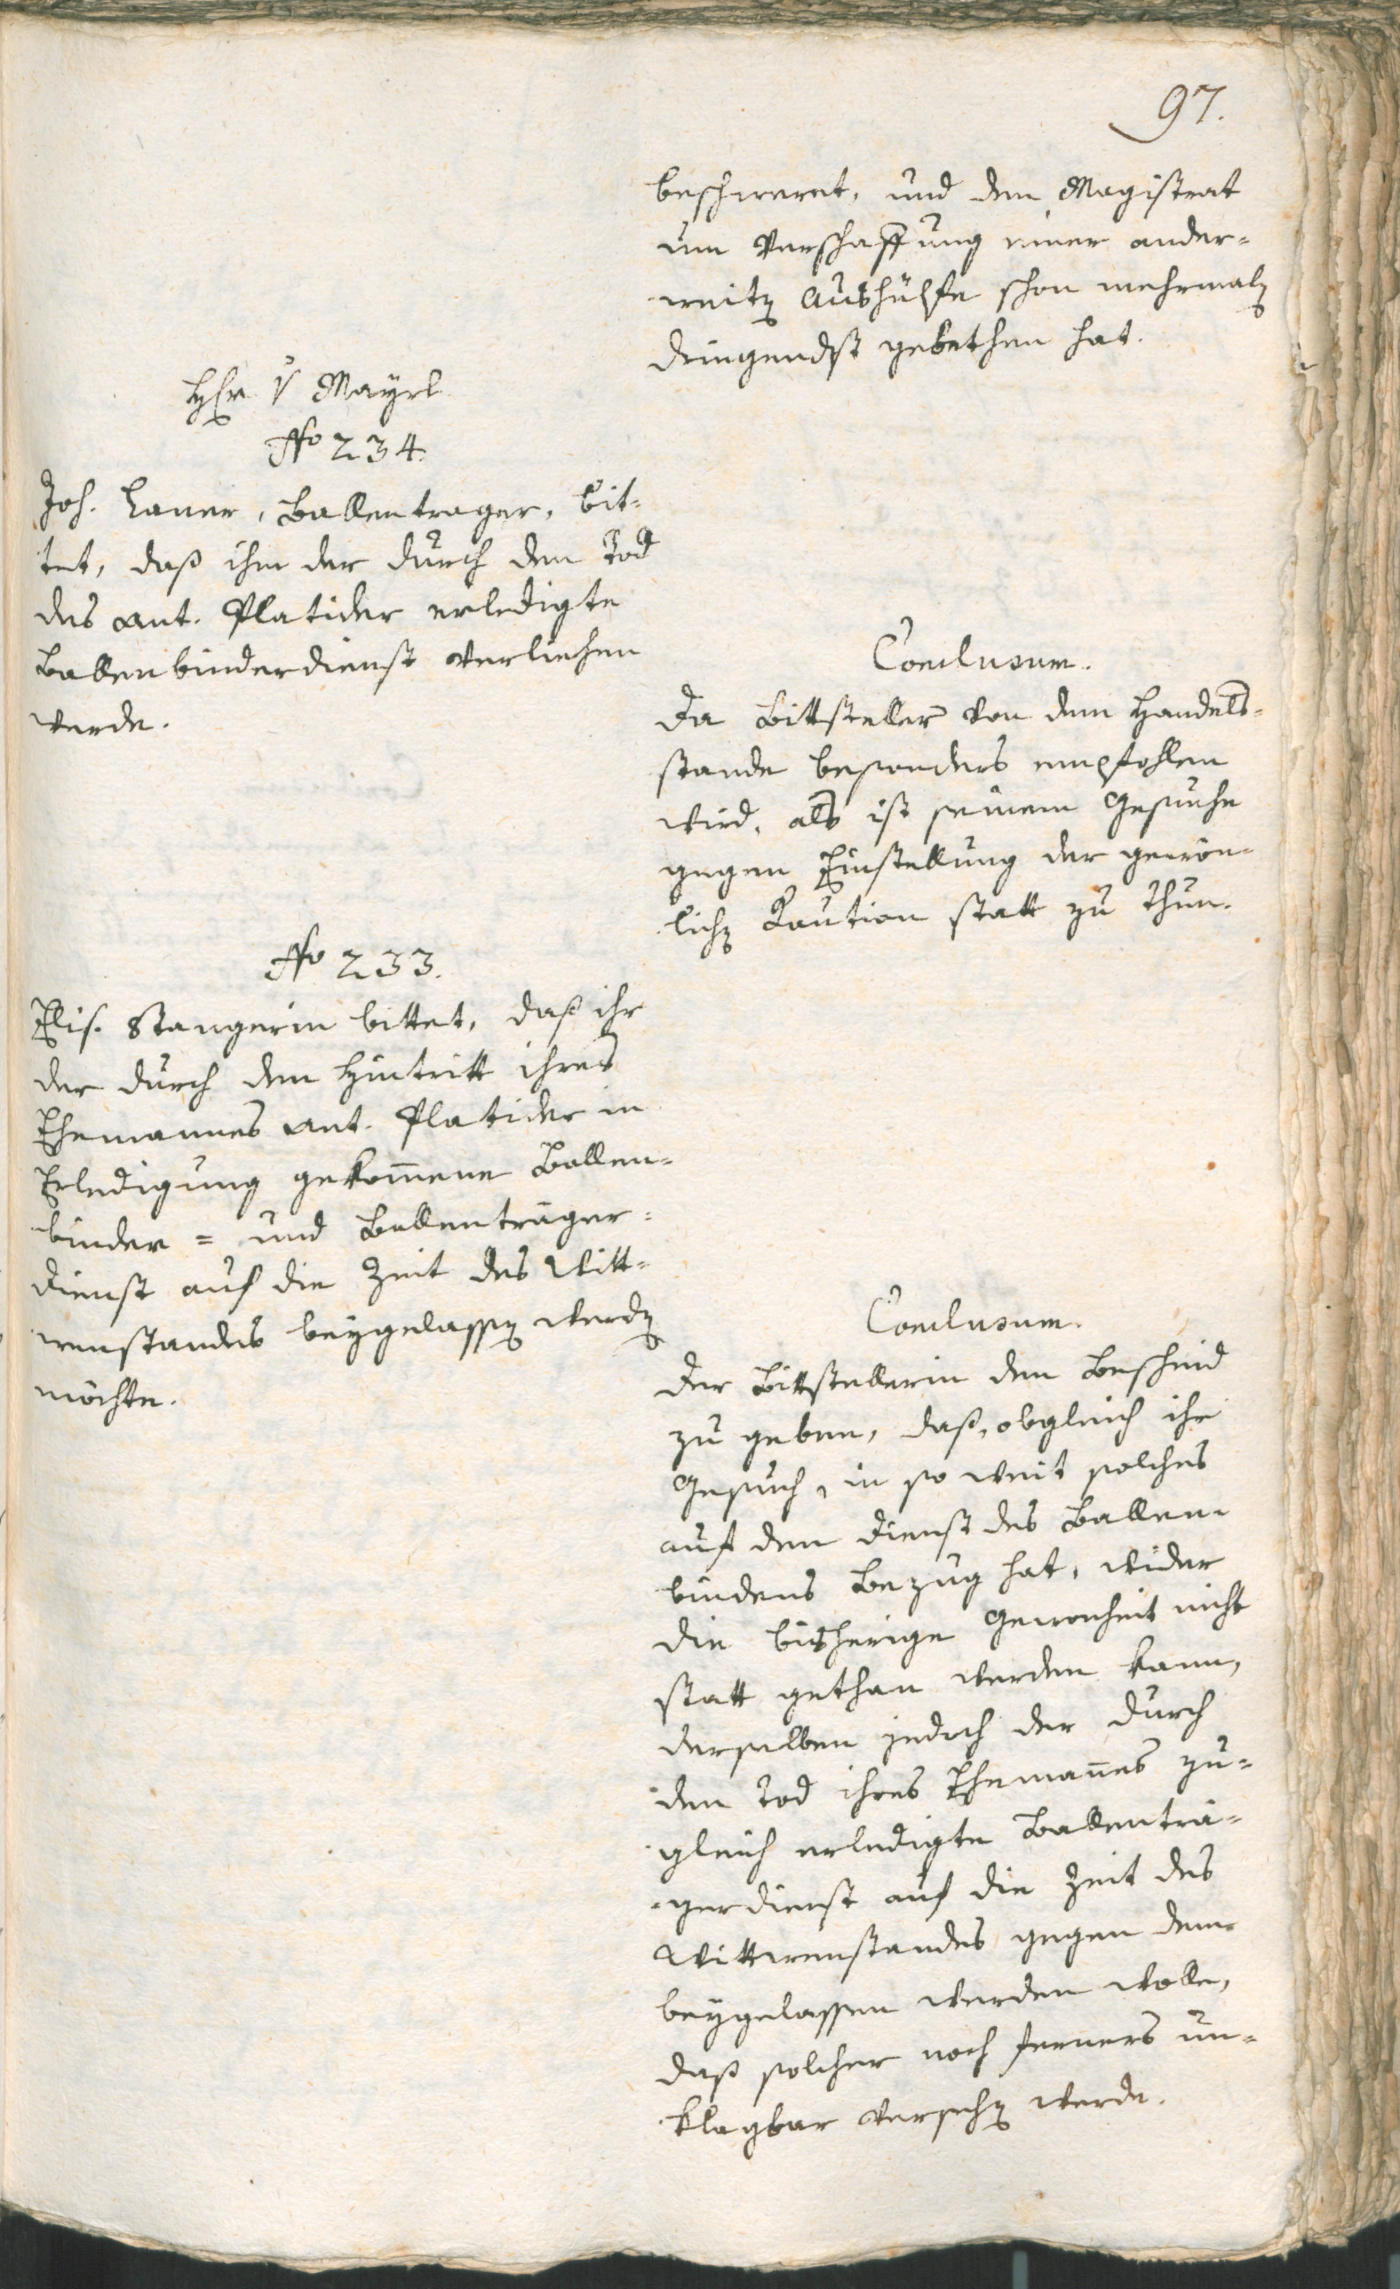 97.
beschweret, und den Magistrat
um Verschaffung einer ander=
weitg Aushülfe schon mehrmalg
dringendst gebethen hat.
Hr v Mayrl
No 234.
Joh. Laner, Ballentrager, bit=
tet, daß ihm der durch den Tod
des Ant. Platider erledigte
Ballenbinderdienst verliehen
werde.
Conclusum.
Da Bittsteller von dem Handels=
stande besonders empfohlen
wird, als ist seinem Gesuche
gegen Einstellung der gewön=
lichg Kaution statt zu thun.
No 233.
Elis. Stangerin bittet, daß ihr
der durch den Hintritt ihres
Ehemannes Ant. Platider in
Erledigung gekom̄ene Ballen=
binder = und Ballenträger=
dienst auf die Zeit des Witt=
wenstandes beygelassg werdg
möchte.
Conclusum.
Der Bittstellerin den Bescheid
zu geben, daß, obgleich ihr
Gesuch, in so weit solches
auf den Dienst des Ballen=
bindens Bezug hat, wider
die bisherige Gewonheit nicht
statt gethan werden kann,
derselben jedoch der durch
den Tod ihres Ehemañes zu=
gleich erledigte Ballenträ=
gerdienst auf die Zeit des
Wittwenstandes gegen deme
beygelassen werden wolle,
daß solcher noch ferners un=
klagbar versehg werde.